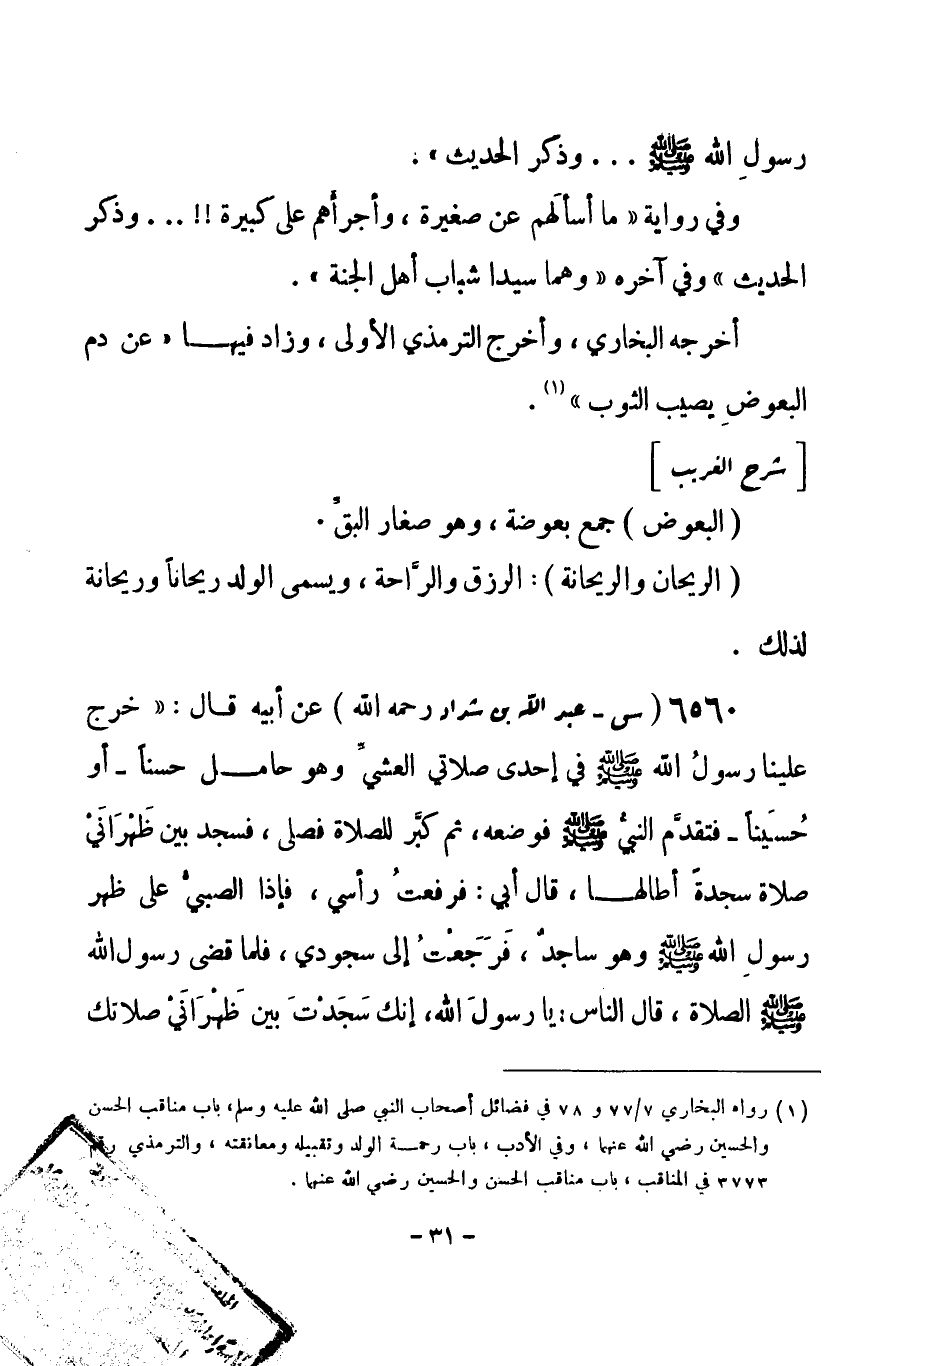 رسولِ الله ﷺ . . . وذكر الحديث » .
وفي رواية « ما أسألَهم عن صغيرة ، وأجرأَهم على كبيرة !! . . . وذكر
الحديث » وفي آخره « وهما سيدا شباب أهل الجنة » .
أخرجه البخاري ، وأخرج الترمذي الأولى ، وزاد فيهـــا « عن دم
البعوضِ يصيب الثوب » (١) .
[ شرح الغريب ]
( البعوض ) جمع بعوضة ، وهو صغار البقِّ .
( الريحان والريحانة ) : الرزق والرَّاحة ، ويسمى الولد ريحاناً وريحانة
لذلك .
٦٥٦٠ ( س - عبد الله بن شداد رحمه الله ) عن أبيه قـال : « خرج
علينا رسولُ الله ﷺ في إحدى صلاتي العشيِّ وهو حامـــل حسناً - أو
حُسَيناً - فتقدَّم النبيُّ ﷺ فوضعه، ثم كبَّر للصلاة فصلى ، فسجد بين ظَهْرَانَيْ
صلاة سجدةً أطالهـــا ، قال أبي : فرفعتُ رأسي ، فإذا الصبيُّ على ظهر
رسولِ الله ﷺ وهو ساجدٌ ، فَرَجَعْتُ إلى سجودي ، فلما قضى رسول الله
ﷺ الصلاة ، قال الناس : يا رسولَ الله، إنك سَجَدْتَ بين ظَهْرَانَيْ صلاتك
(١) رواه البخاري ٧٧/٧ و ٧٨ في فضائل أصحاب النبي صلى الله عليه وسلم، باب مناقب الحسن
والحسين رضي الله عنهما ، وفي الأدب ، باب رحمـة الولد وتقبيله ومعانقته ، والترمذي رقم
٣٧٧٣ في المناقب ، باب مناقب الحسن والحسين رضي الله عنهما .
- ٣١ -